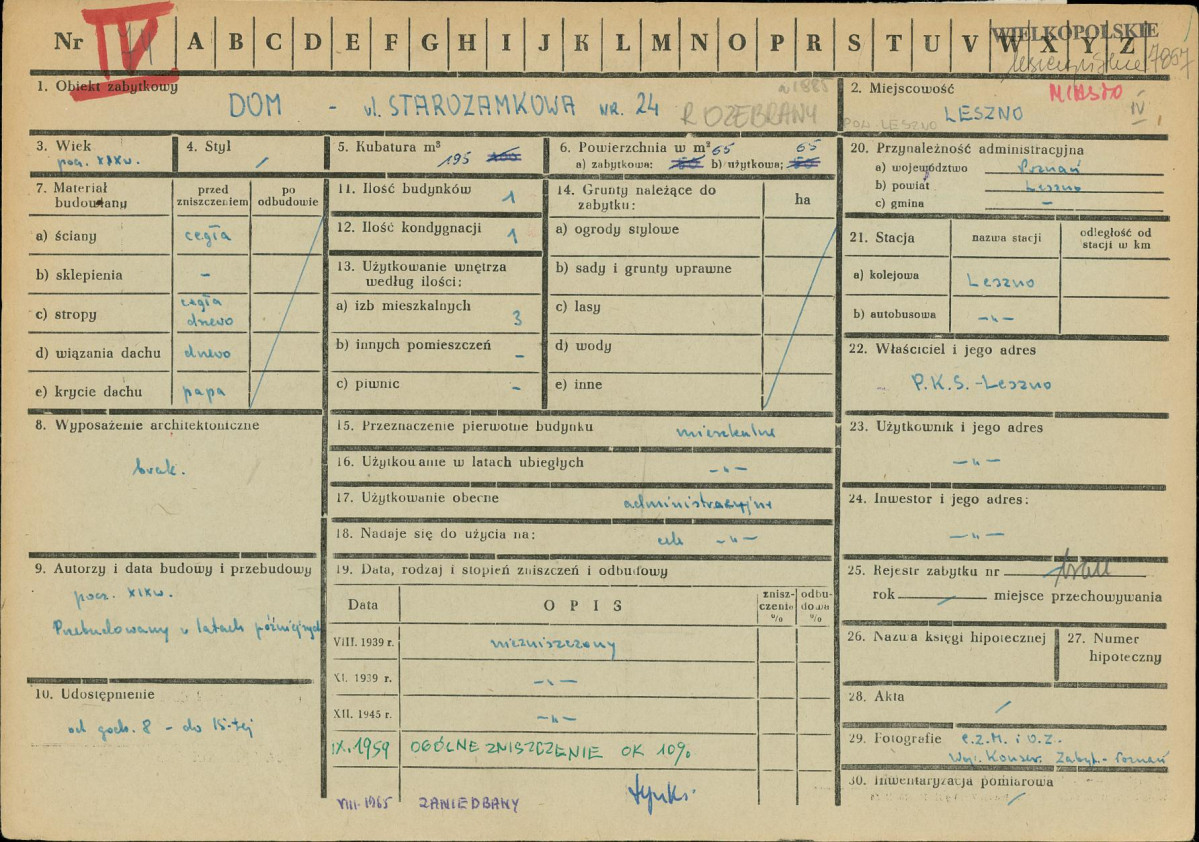 Nr IV A B C D E F G H I J K L M N O P R S T U V W X Y Z
WIELKOPOLSKIE
7857
1. Obiekt zabytkowy
DOM - ul. STAROZAMKOWA nr. 24
ROZEBRANY
2. Miejscowość MIASTO
POW. LESZNO LESZNO IV
3. Wiek
pocz. XIX w.
4. Styl
5. Kubatura m³
195
6. Powierzchnia w m² 65 65
a) zabytkowa: b) użytkowa:
7. Materiał budowlany
przed zniszczeniem
po odbudowie
a) ściany cegła
b) sklepienia -
c) stropy cegła drewo
d) wiązania dachu drewo
e) krycie dachu papa
8. Wyposażenie architektoniczne
brak.
9. Autorzy i data budowy i przebudowy
pocz. XIX w.
Przebudowany w latach późniejszych
10. Udostępnienie
od godz. 8 - do 15-tej
11. Ilość budynków 1
12. Ilość kondygnacji 1
13. Użytkowanie wnętrza według ilości:
a) izb mieszkalnych 3
b) innych pomieszczeń -
c) piwnic -
14. Grunty należące do zabytku:
ha
a) ogrody stylowe
b) sady i grunty uprawne
c) lasy
d) wody
e) inne
15. Przeznaczenie pierwotne budynku mieszkalne
16. Użytkowanie w latach ubiegłych -"-
17. Użytkowanie obecne administracyjny
18. Nadaje się do użycia na: cele -"-
19. Data, rodzaj i stopień zniszczeń i odbudowy
Data
OPIS
zniszczenia %
odbudowa %
VIII. 1939 r. niezniszczony
XI. 1939 r. -"-
XII. 1945 r. -"-
IX. 1959 OGÓLNE ZNISZCZENIE OK 10%
VIII-1965 ZANIEDBANY
20. Przynależność administracyjna
a) województwo Poznań
b) powiat Leszno
c) gmina -
21. Stacja
nazwa stacji
odległość od stacji w km
a) kolejowa Leszno
b) autobusowa -"-
22. Właściciel i jego adres
P.K.S. - Leszno
23. Użytkownik i jego adres
-"-
24. Inwestor i jego adres:
-"-
25. Rejestr zabytku nr brak
rok miejsce przechowywania
26. Nazwa księgi hipotecznej
27. Numer hipoteczny
28. Akta
29. Fotografie C.Z.M. i O.Z.
Woj. Konser. Zabyt. - Poznań
30. Inwentaryzacja pomiarowa